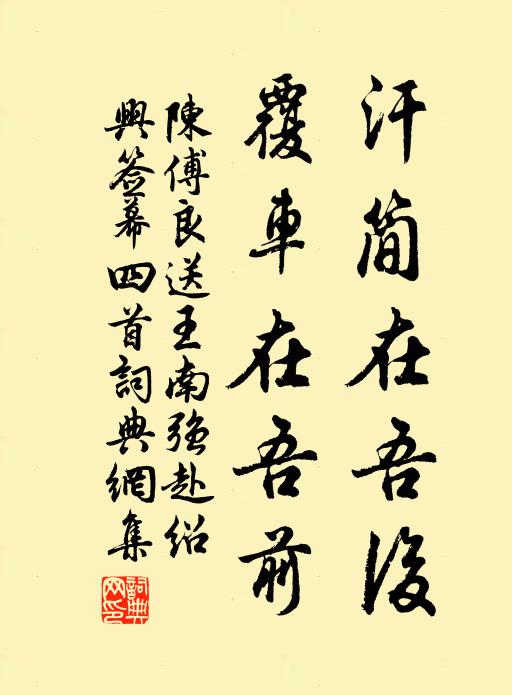 汗简在吾後
覆車在吾前
陳傅良送王南强赴绍
興签幕四首詞典網集
詞典網印